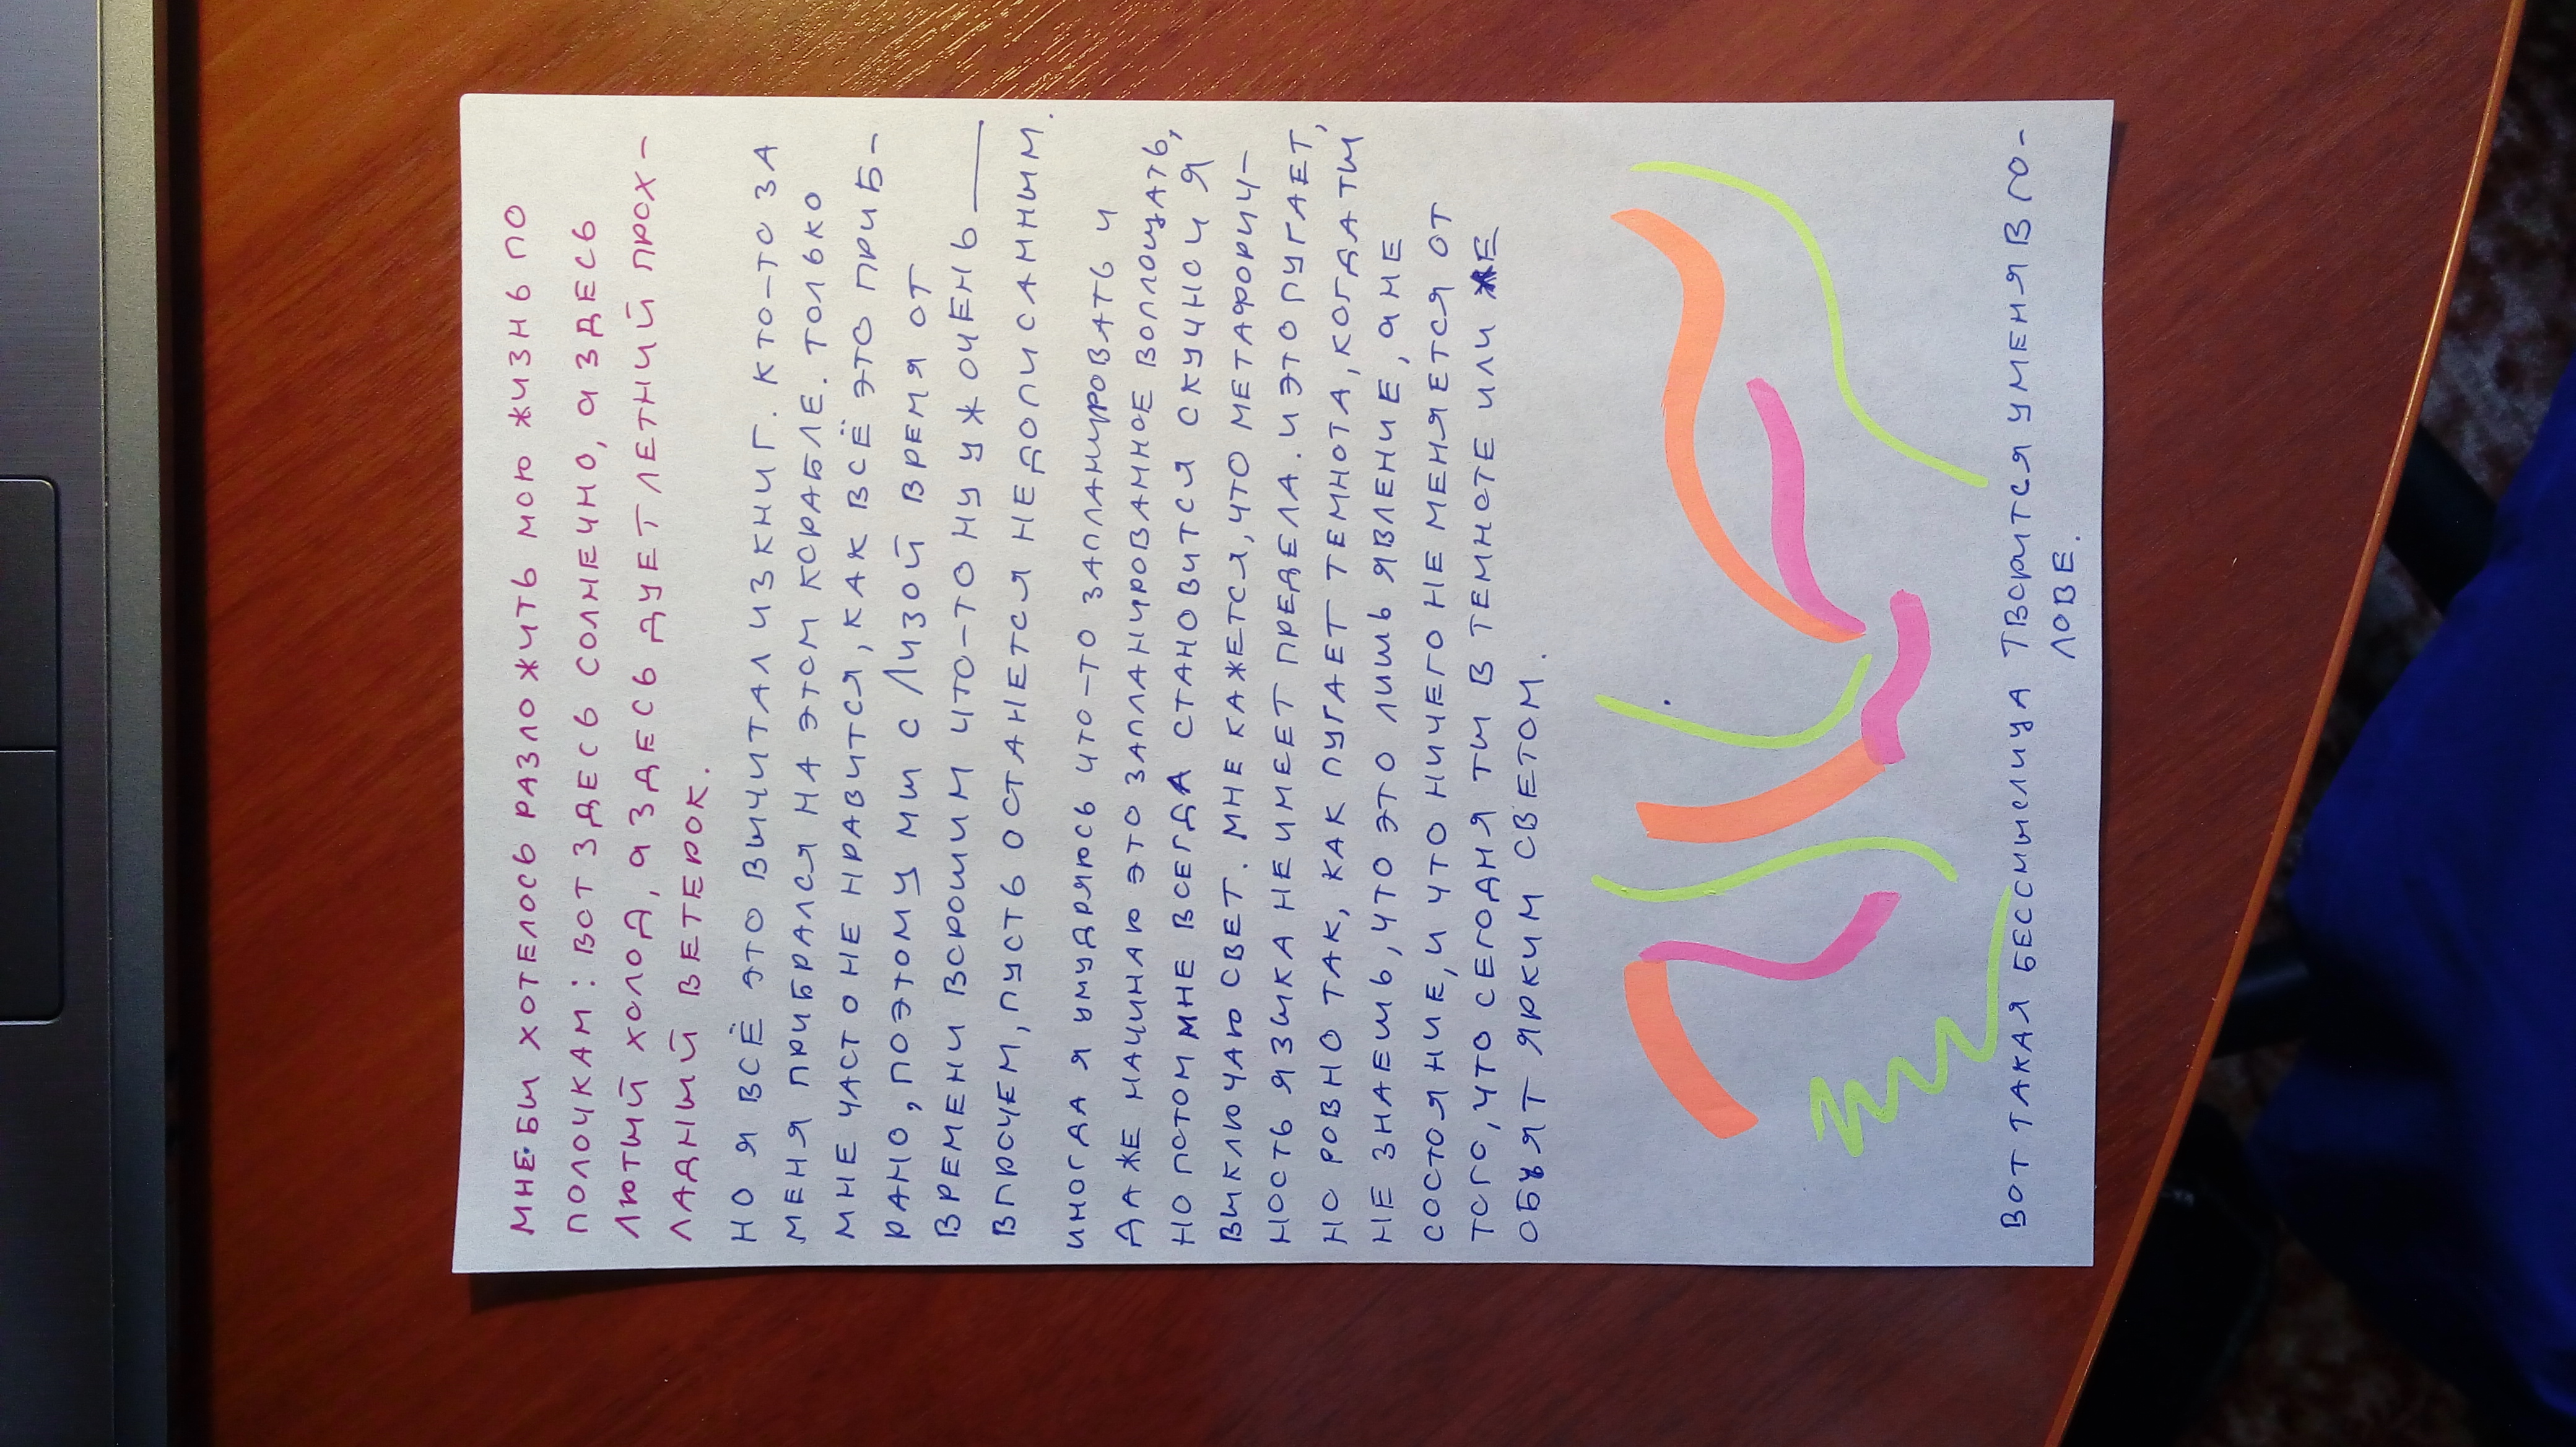 МНЕ БЫ ХОТЕЛОСЬ РАЗЛОЖИТЬ МОЮ ЖИЗНЬ ПО
ПОЛОЧКАМ: ВОТ ЗДЕСЬ СОЛНЕЧНО, А ЗДЕСЬ
ЛЮТЫЙ ХОЛОД, А ЗДЕСЬ ДУЕТ ЛЕТНИЙ ПРОХ-
ЛАДНЫЙ ВЕТЕРОК.
НО Я ВСЁ ЭТО ВЫЧИТАЛ ИЗ КНИГ. КТО-ТО ЗА
МЕНЯ ПРИБРАЛСЯ НА ЭТОМ КОРАБЛЕ. ТОЛЬКО
МНЕ ЧАСТО НЕ НРАВИТСЯ, КАК ВСЁ ЭТО ПРИБ-
РАНО, ПОЭТОМУ МЫ С ЛИЗОЙ ВРЕМЯ ОТ
ВРЕМЕНИ ВСРОШИМ ЧТО-ТО НУ УЖ ОЧЕНЬ ___
ВПРОЧЕМ, ПУСТЬ ОСТАНЕТСЯ НЕДОПИСАННЫМ.
ИНОГДА Я УМУДРЯЮСЬ ЧТО-ТО ЗАПЛАНИРОВАТЬ И
ДАЖЕ НАЧИНАЮ ЭТО ЗАПЛАНИРОВАННОЕ ВОПЛОЩАТЬ,
НО ПОТОМ МНЕ ВСЕГДА СТАНОВИТСЯ СКУЧНО И Я
ВЫКЛЮЧАЮ СВЕТ. МНЕ КАЖЕТСЯ, ЧТО МЕТАФОРИЧ-
НОСТЬ ЯЗЫКА НЕ ИМЕЕТ ПРЕДЕЛА. И ЭТО ПУГАЕТ,
НО РОВНО ТАК, КАК ПУГАЕТ ТЕМНОТА, КОГДА ТЫ
НЕ ЗНАЕШЬ, ЧТО ЭТО ЛИШЬ ЯВЛЕНИЕ, А НЕ
СОСТОЯНИЕ, И ЧТО НИЧЕГО НЕ МЕНЯЕТСЯ ОТ
ТОГО, ЧТО СЕГОДНЯ ТЫ В ТЕМНОТЕ ИЛИ ЖЕ
ОБЪЯТ ЯРКИМ СВЕТОМ.
ВОТ ТАКАЯ БЕССМЫСЛИЦА ТВОРИТСЯ У МЕНЯ В ГО-
ЛОВЕ.